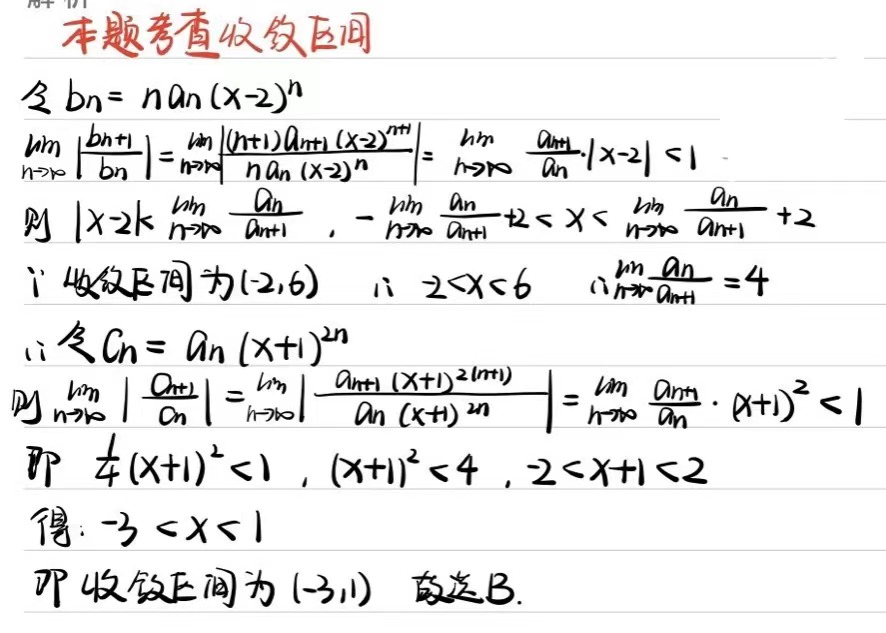 解析
本题考查收敛区间
令 bn = n an (x-2)^n
lim n→∞ |bn+1/bn| = lim n→∞ |(n+1)an+1(x-2)^(n+1)/n an (x-2)^n| = lim n→∞ an+1/an · |x-2| < 1
则 |x-2|< lim n→∞ an/an+1 , - lim n→∞ an/an+1 +2 < x < lim n→∞ an/an+1 +2
∵ 收敛区间为(-2,6) ∴ -2<x<6 ∴ lim n→∞ an/an+1 = 4
∴ 令 Cn = an (x+1)^2n
则 lim n→∞ |Cn+1/Cn| = lim n→∞ |an+1 (x+1)^2(n+1)/an (x+1)^2n| = lim n→∞ an+1/an · (x+1)^2 < 1
即 1/4(x+1)^2 < 1 , (x+1)^2 < 4 , -2 < x+1 < 2
得: -3 < x < 1
即 收敛区间为 (-3,1) 故选B.